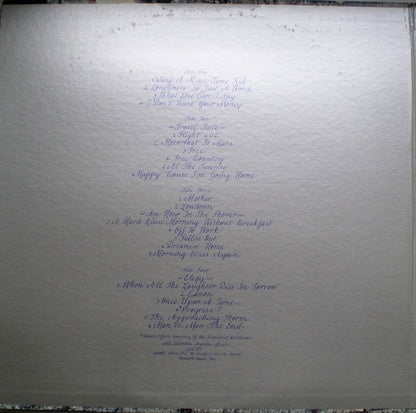 Side One
1. Sing A Mean Tune Kid
2. Loneliness Is Just A Word
3. What Else Can I Say
4. I Don't Want Your Money
Side Two
—Travel Suite—
1. Flight 602
2. Motorboat To Mars
3. Free
4. Free Country
5. At The Sunrise
6. Happy 'Cause I'm Going Home
Side Three
1. Mother
2. Lowdown
—An Hour In The Shower—
3. A Hard Risin' Morning Without Breakfast
4. Off To Work
5. Fallin' Out
6. Dreamin' Home
7. Morning Blues Again
Side Four
—Elegy—
1. When All The Laughter Dies In Sorrow
2. Canon
3. Once Upon A Time—
4. Progress?
5. The Approaching Storm
6. Man Vs. Man The End—